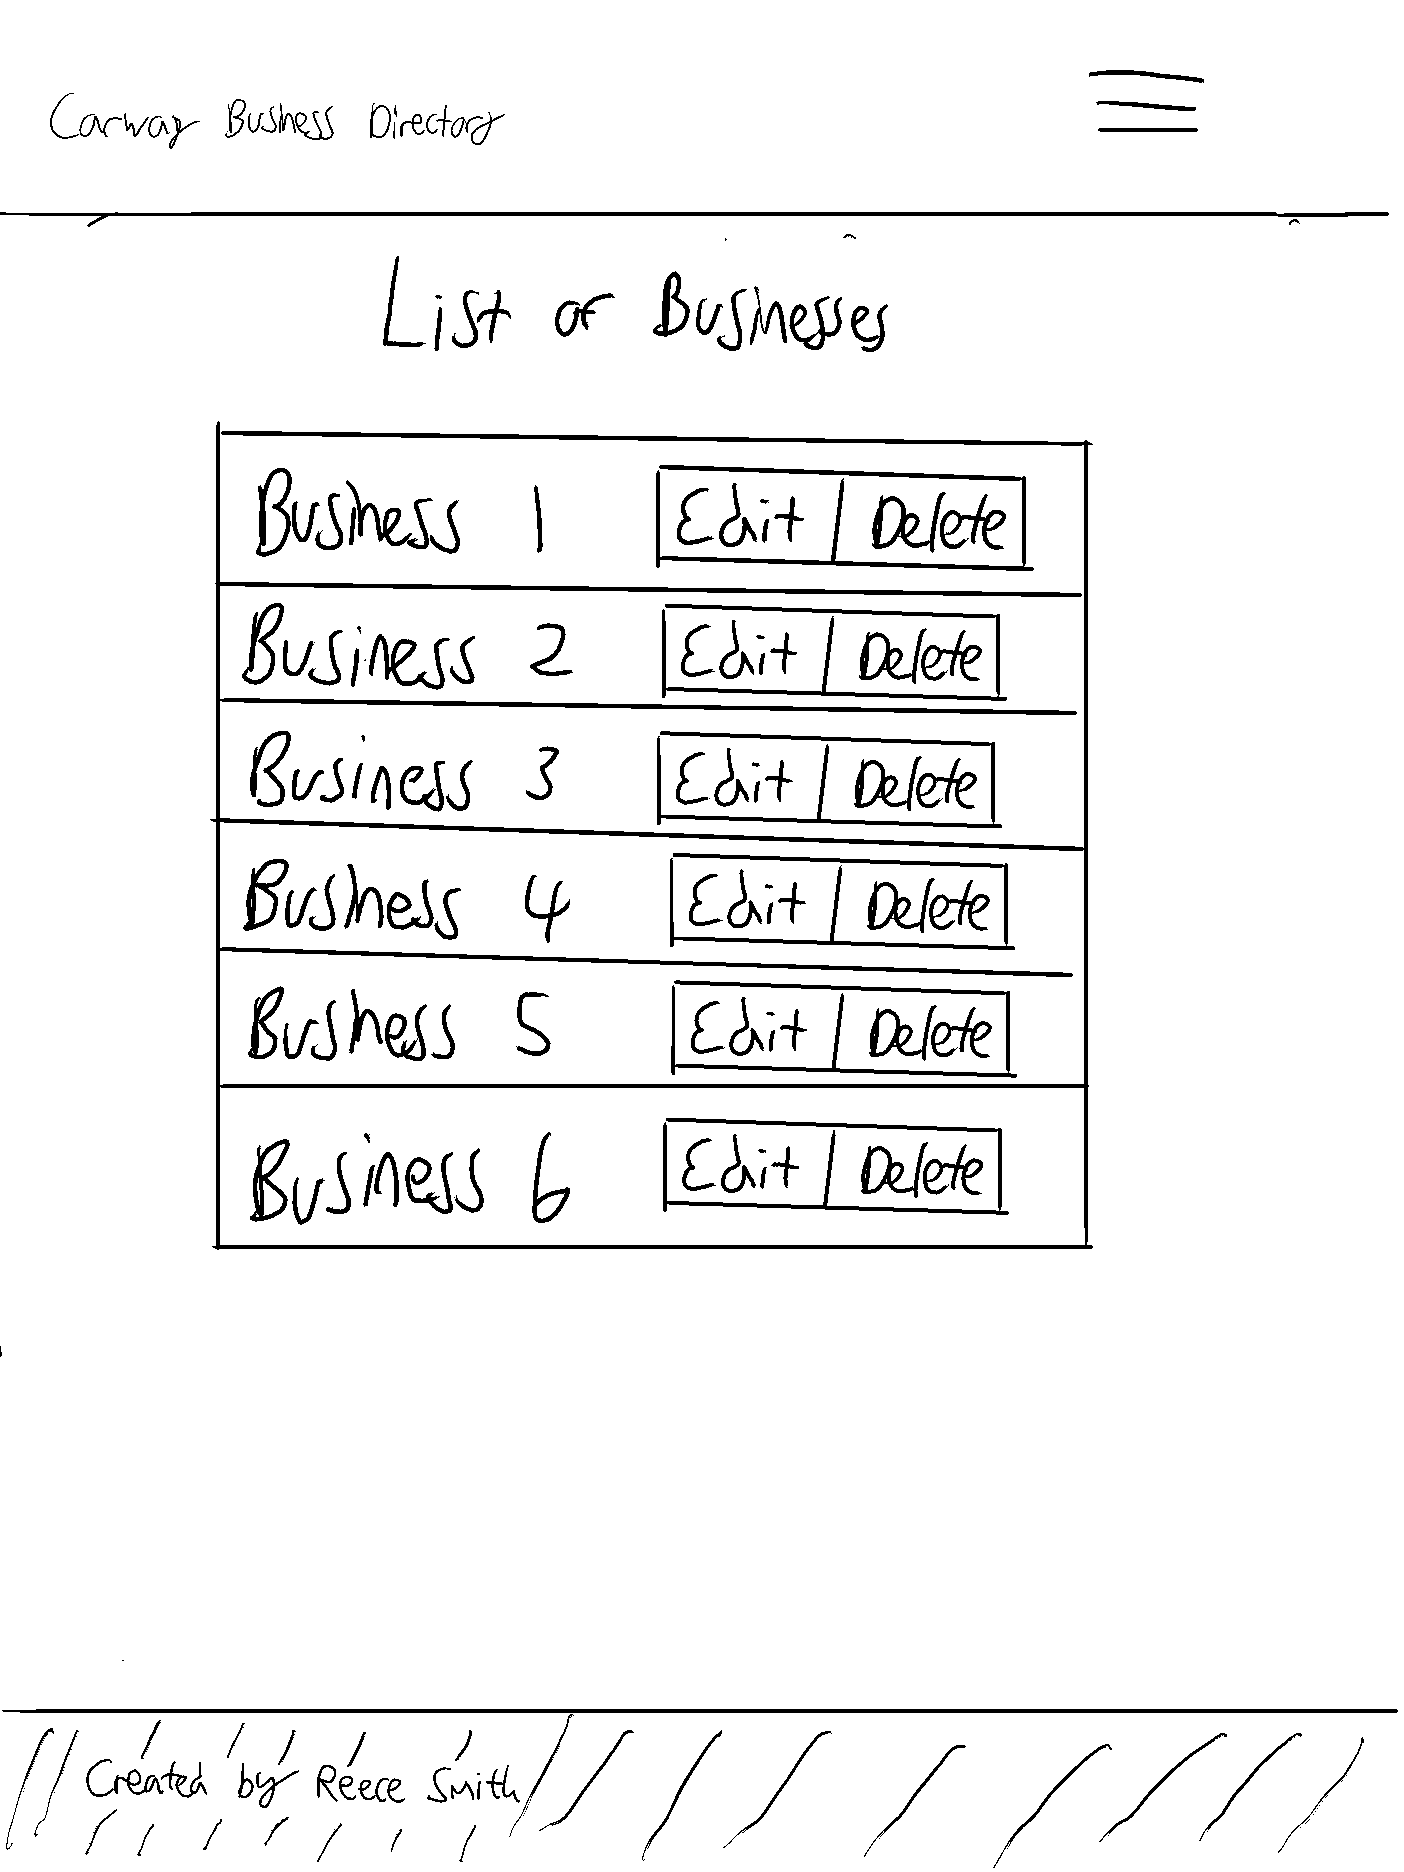 Carway Business Directory
List of Businesses
Business 1 Edit Delete
Business 2 Edit Delete
Business 3 Edit Delete
Business 4 Edit Delete
Business 5 Edit Delete
Business 6 Edit Delete
Created by Reece Smith